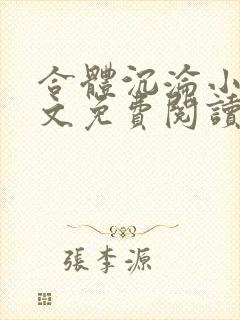 合體沉淪小
文免費閱讀
張李源